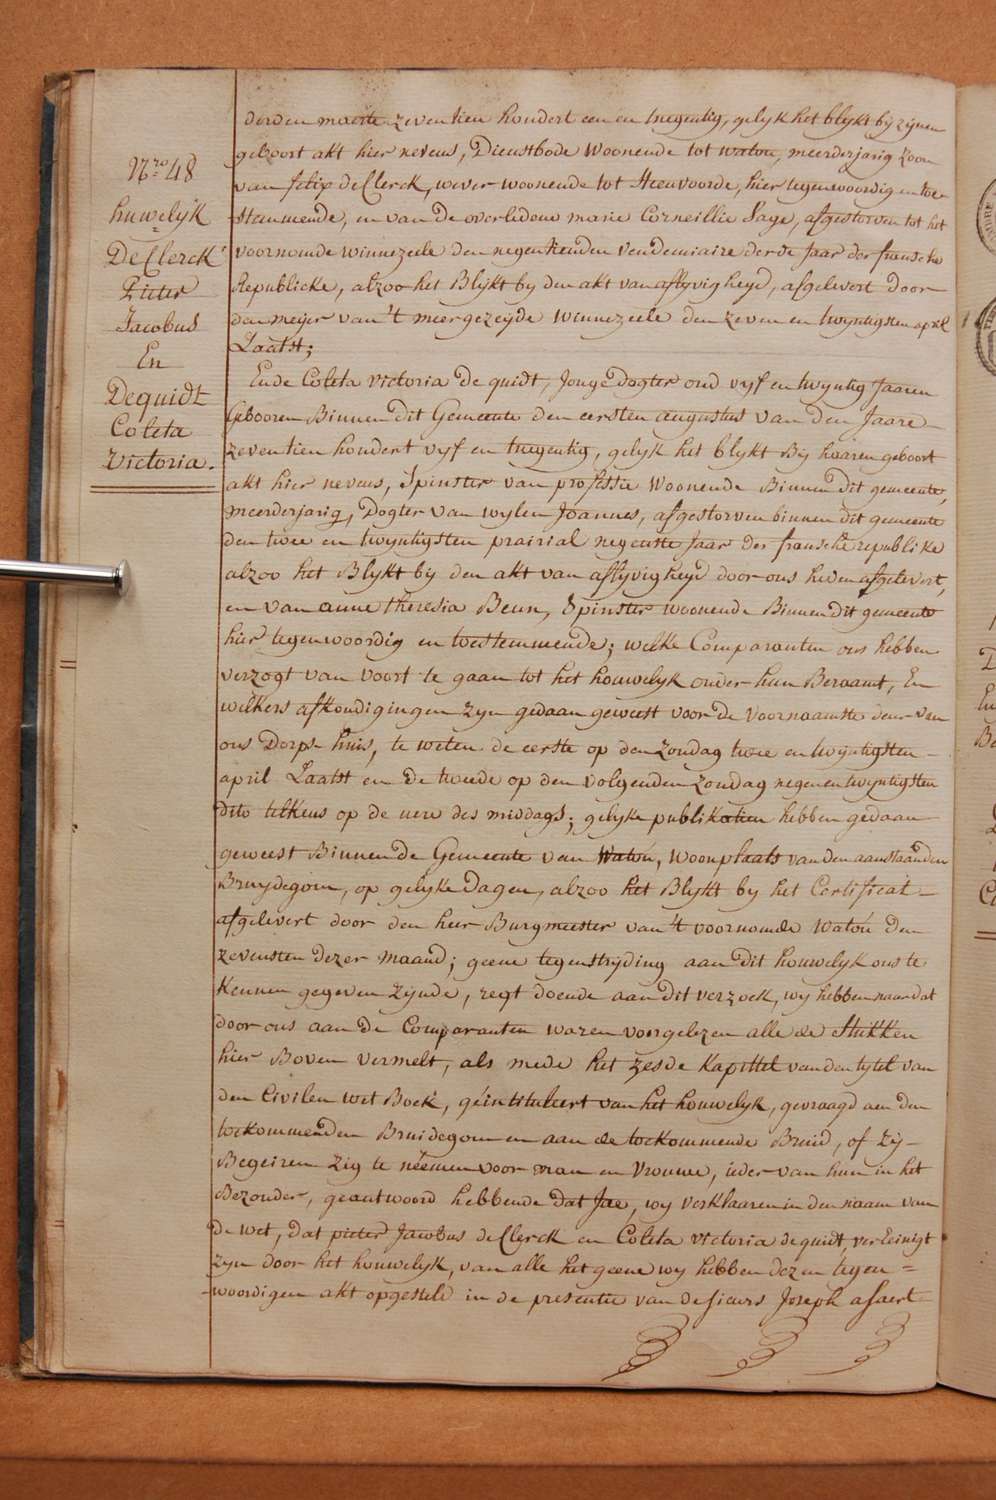 Nro 48
huwelyk
De Clerck
Pieter
Jacobus
En
Dequidt
Coleta
Victoria.
derden maerte zeventien hondert een en tnegentig, gelyk het blykt bij zijnen
geboort akt hier nevens, Dienstbode woonende tot watou, meerderjarig zoon
van felix de Clerck, wever woonende tot Steenvoorde, hier tegenwoordig en toe-
stemmende, en van de overledene marie Corneillie Sage, afgestorven tot het
voornoemde winnezeele den negentienden vendemiaire derde Jaar der fransche
Republicke, alzoo het Blijkt by den akt van aflyvigheyd, afgelevert door
den meijer van 't meergezeyde winnezeele den zeven en twyntigsten april
Laatst;
Ende Coleta victoria De quidt, Jonge Dogter oud vyf en twyntig Jaaren
Gebooren Binnen Dit Gemeente den eersten augustus van den Jaare
zeventien hondert vyf en tnegentig, gelyk het blykt Bij haaren geboort
akt hier nevens, Spinster van professie woonende Binnen dit gemeente,
meerderjarig, Dogter van wylen Joannes, afgestorven binnen dit gemeente
den twee en twyntigsten prairial negenste Jaar der fransche republike
alzoo het Blykt bij den akt van aflyvigheyd door ons heden afgelevert,
en van anne theresia Beun, Spinster woonende Binnen dit gemeente
hier tegenwoordig en toestemmende; welke Comparanten ons hebben
verzogt van voort te gaan tot het houwelyk onder hun Beraamt, En
welkers afkondigingen zyn gedaan geweest voor de voornaamste deur van
ons Dorps huis, te weten de eerste op den zondag twee en twyntigsten
april Laatst en de tweede op den volgenden zondag negen en twyntigsten
dito telkens op de uere des middags; gelyke publikatien hebben gedaan
geweest Binnen de Gemeente van Watou, woonplaats van den aanstaanden
Bruydegom, op gelyke Dagen, alzoo het Blykt by het Certificat
afgelevert door den heer Burgmeester van 't voornoemde watou den
zevensten dezer maand; geene tegenstryding aan dit houwelyk ons te
kennen gegeven zynde, regt doende aan dit verzoek, wy hebben naar dat
door ons aan de Comparanten waren voorgelezen alle de Stukken
hier Boven vermelt, als mede het zesde kapittel van den tytel van
den Civilen wet Boek, geïntituleert van het houwelyk, gevraagd aen den
toekommenden Bruidegom en aan de toekommende Bruid, of Zij
Begeiren zig te néémen voor man en vrouwe, ieder van hun in het
Bezonder, geantwoord hebbende dat Jae, wy verklaaren in den naam van
de wet, dat pieter Jacobus de Clerck en Coleta victoria dequidt, vereinigt
zyn door het houwelyk, van alle het geene wy hebben dezen tegen=
-woordigen akt opgesteld in de presentie van de sieurs Joseph